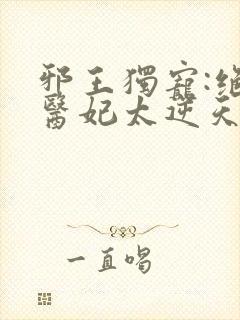 邪王獨寵:絕
醫妃太逆天
一直唱